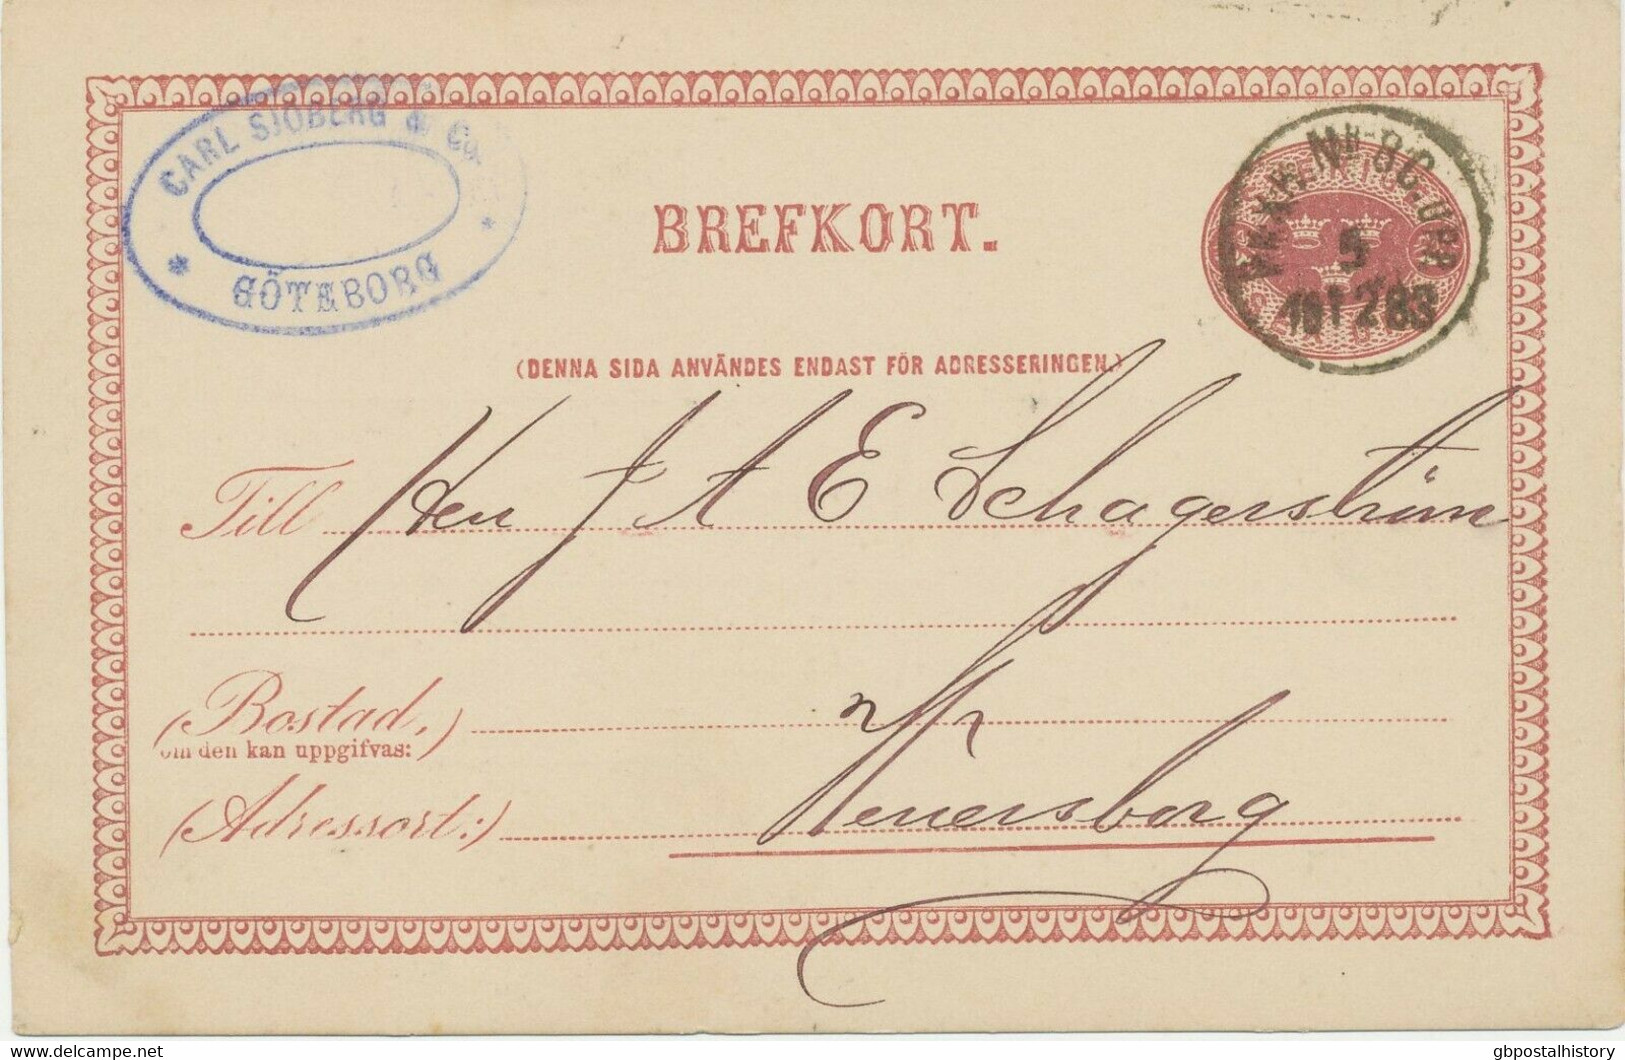 CARL SJÖBERG & Co.
GÖTEBORG
BREFKORT.
5
12 83
(DENNA SIDA ANVÄNDES ENDAST FÖR ADRESSERINGEN.)
Till Herr J A E Schagerström
(Bostad,)
om den kan uppgifvas:
(Adressort:) Wenersborg
delcampe.net
gbpostalhistory